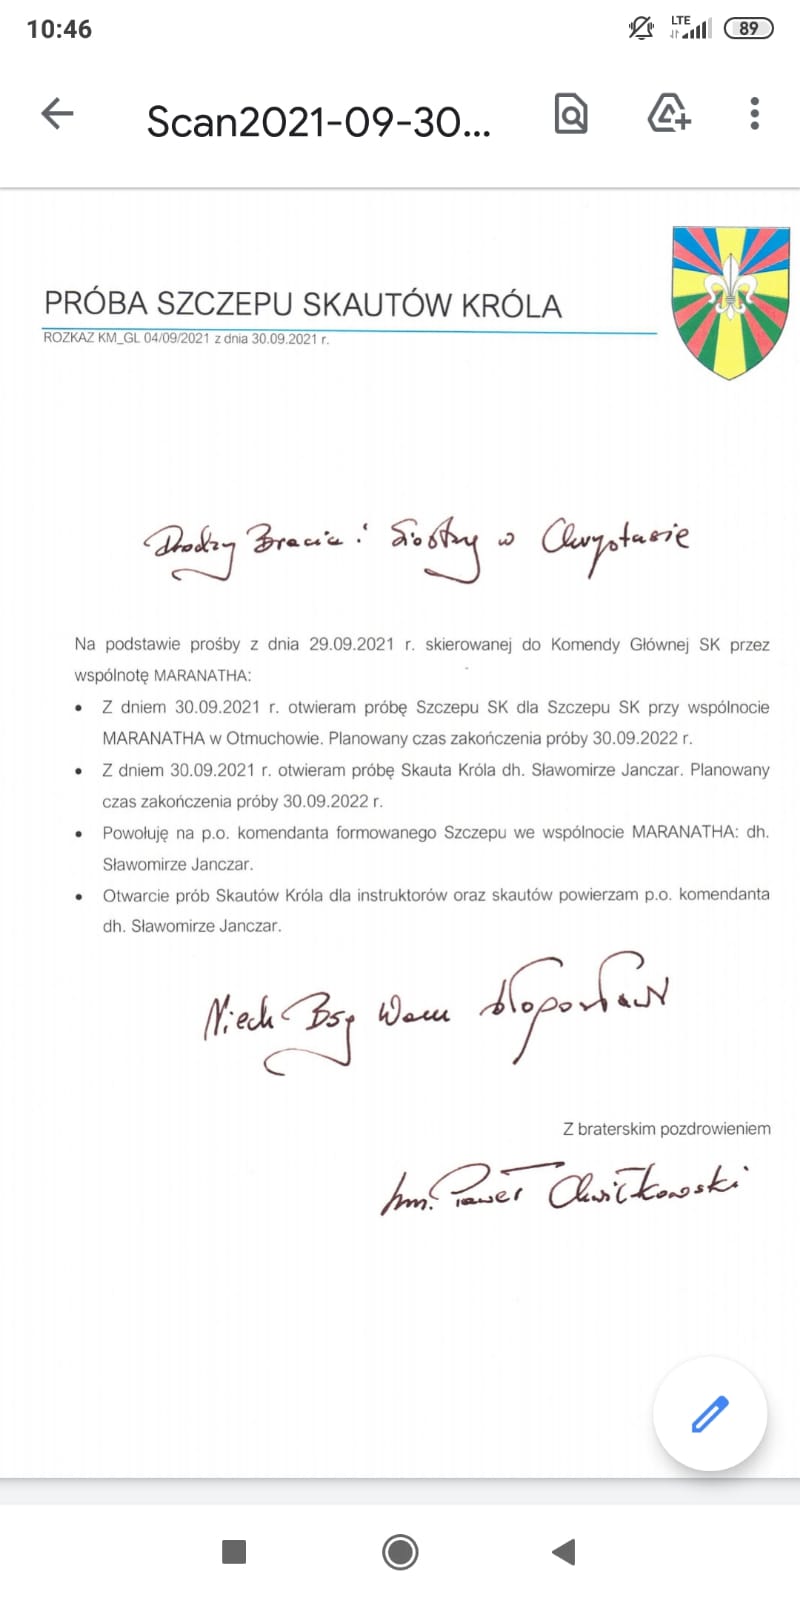 10:46
LTE
89
Scan2021-09-30...
PRÓBA SZCZEPU SKAUTÓW KRÓLA
ROZKAZ KM_GL 04/09/2021 z dnia 30.09.2021 r.
Drodzy Bracia i Siostry w Chrystusie
Na podstawie prośby z dnia 29.09.2021 r. skierowanej do Komendy Głównej SK przez
wspólnotę MARANATHA:
• Z dniem 30.09.2021 r. otwieram próbę Szczepu SK dla Szczepu SK przy wspólnocie
MARANATHA w Otmuchowie. Planowany czas zakończenia próby 30.09.2022 r.
• Z dniem 30.09.2021 r. otwieram próbę Skauta Króla dh. Sławomirze Janczar. Planowany
czas zakończenia próby 30.09.2022 r.
• Powołuję na p.o. komendanta formowanego Szczepu we wspólnocie MARANATHA: dh.
Sławomirze Janczar.
• Otwarcie prób Skautów Króla dla instruktorów oraz skautów powierzam p.o. komendanta
dh. Sławomirze Janczar.
Niech Bóg Wam błogosławi
Z braterskim pozdrowieniem
hm. Paweł Chwiłkowski